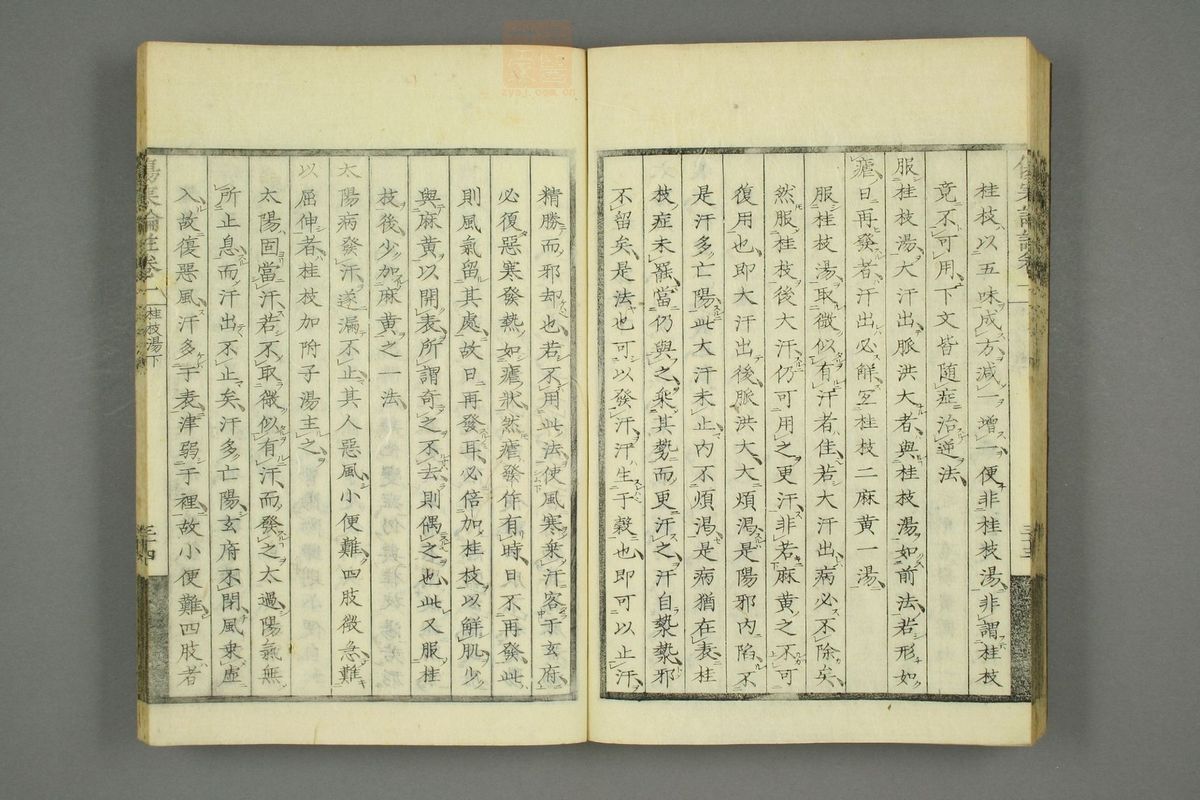 桂枝以五味成方減一增一便非桂枝湯非謂桂枝
竟不可用下文皆隨症治逆法
服桂枝湯大汗出脈洪大者與桂枝湯如前法若形如
瘧日再發者汗出必解宜桂枝二麻黃一湯
服桂枝湯取微似有汗者佳若大汗出病必不除矣
然服桂枝後大汗仍可用之更汗非若麻黃之不可
復用也即大汗出後脈洪大大煩渴是陽邪內陷不
是汗多亡陽此大汗未止內不煩渴是病猶在表桂
枝症未罷當仍與之乘其勢而更汗之汗自漐漐邪
不留矣是法也可以發汗汗生于穀也即可以止汗
精勝而邪却也若不用此法使風寒乘汗客于玄府
必復惡寒發熱如瘧狀然瘧發作有時日不再發此
則風氣留其處故日再發耳必倍加桂枝以解肌少
與麻黃以開表所謂奇之不去則偶之也此又服桂
枝後少加麻黃之一法
太陽病發汗遂漏不止其人惡風小便難四肢微急難
以屈伸者桂枝加附子湯主之
太陽固當汗若不取微似有汗而發之太過陽氣無
所止息而汗出不止矣汗多亡陽玄府不閉風乘虛
入故復惡風汗多于表津弱于裡故小便難四肢者
傷寒論註卷一
桂枝湯下
三十四